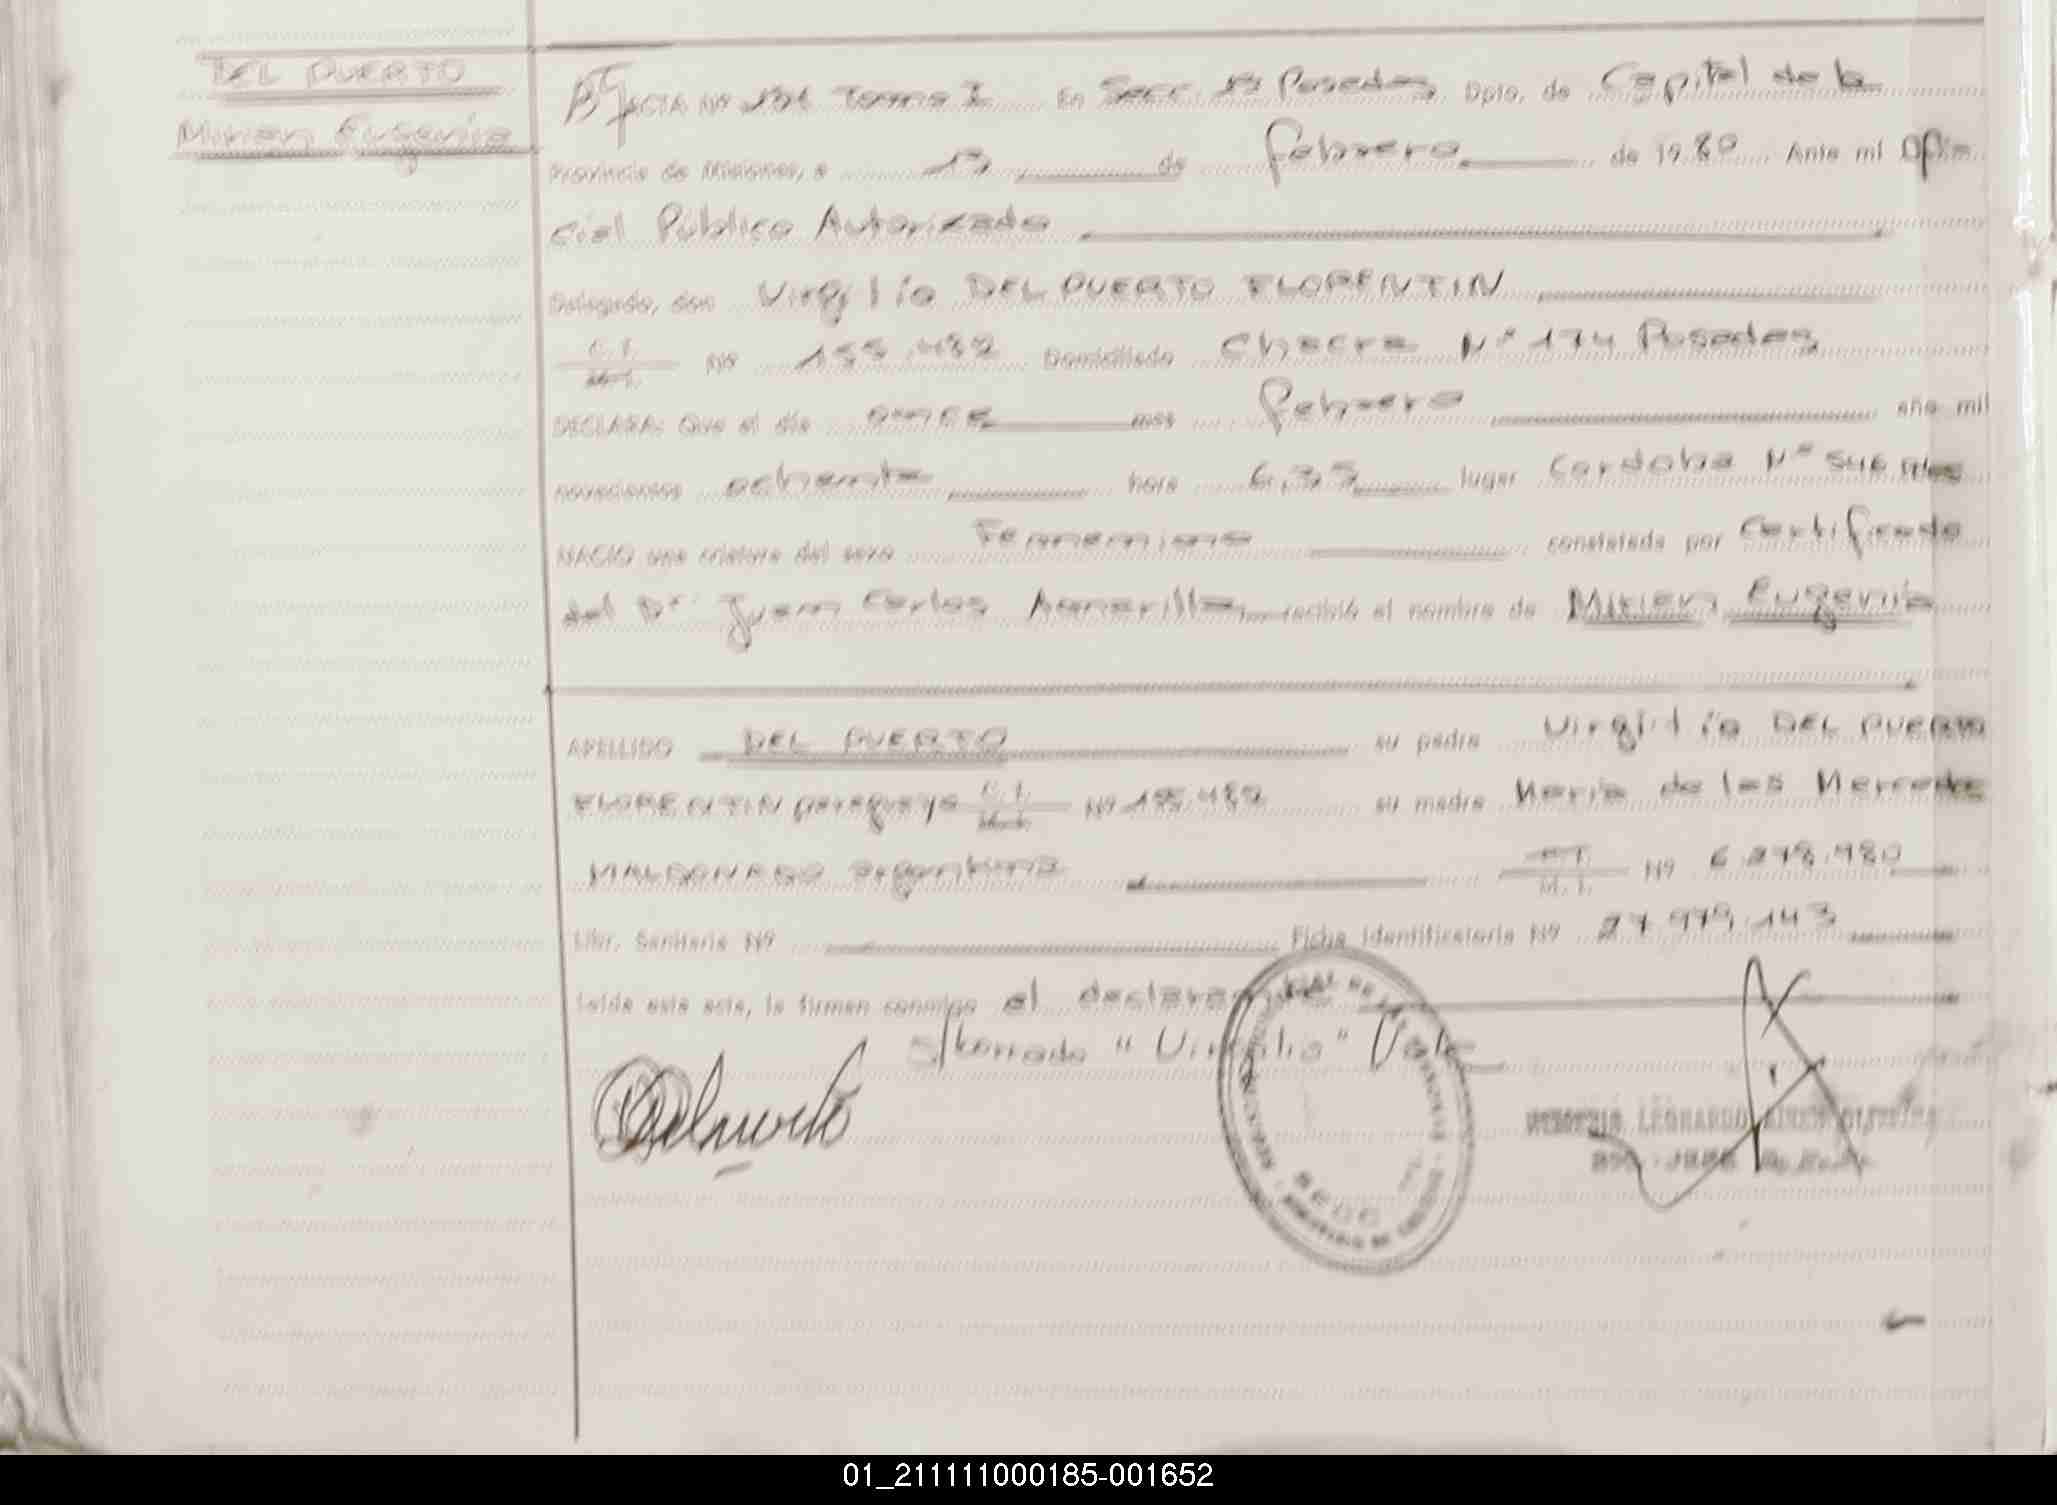 DEL PUERTO
Mirian Eugenia
ACTA Nº Tomo I En Secc. 1ª Posadas Dpto. de Capital de la
Provincia de Misiones, a 13 de febrero de 1980 Ante mi Ofi=
cial Público Autorizado
Delegado, don Virgilio DEL PUERTO FLORENTIN
C. I. M. I. Nº 155.482 Domiciliado Chacra Nº 174 Posadas
DECLARA: Que el día once mes febrero año mil
novecientos ochenta hora 6,35 lugar Cordoba Nº 546 Pdas
NACIO una criatura del sexo Femenino constatada por Certificado
del Dr. Juan Carlos Amarilla, recibió el nombre de Mirian Eugenia
APELLIDO DEL PUERTO su padre Virgilio DEL PUERTO
FLORENTIN paraguayo C. I. M. I. Nº 155.482 su madre Maria de las Mercedes
MALDONADO argentina C. I. M. I. Nº 6.278.980
Libr. Sanitaria Nº Ficha Identificatoria Nº 27.979.143
Leída este acta, la firman conmigo el declarante
"Virgilio" Vale
LEONARDO
SEDE
01_211111000185-001652